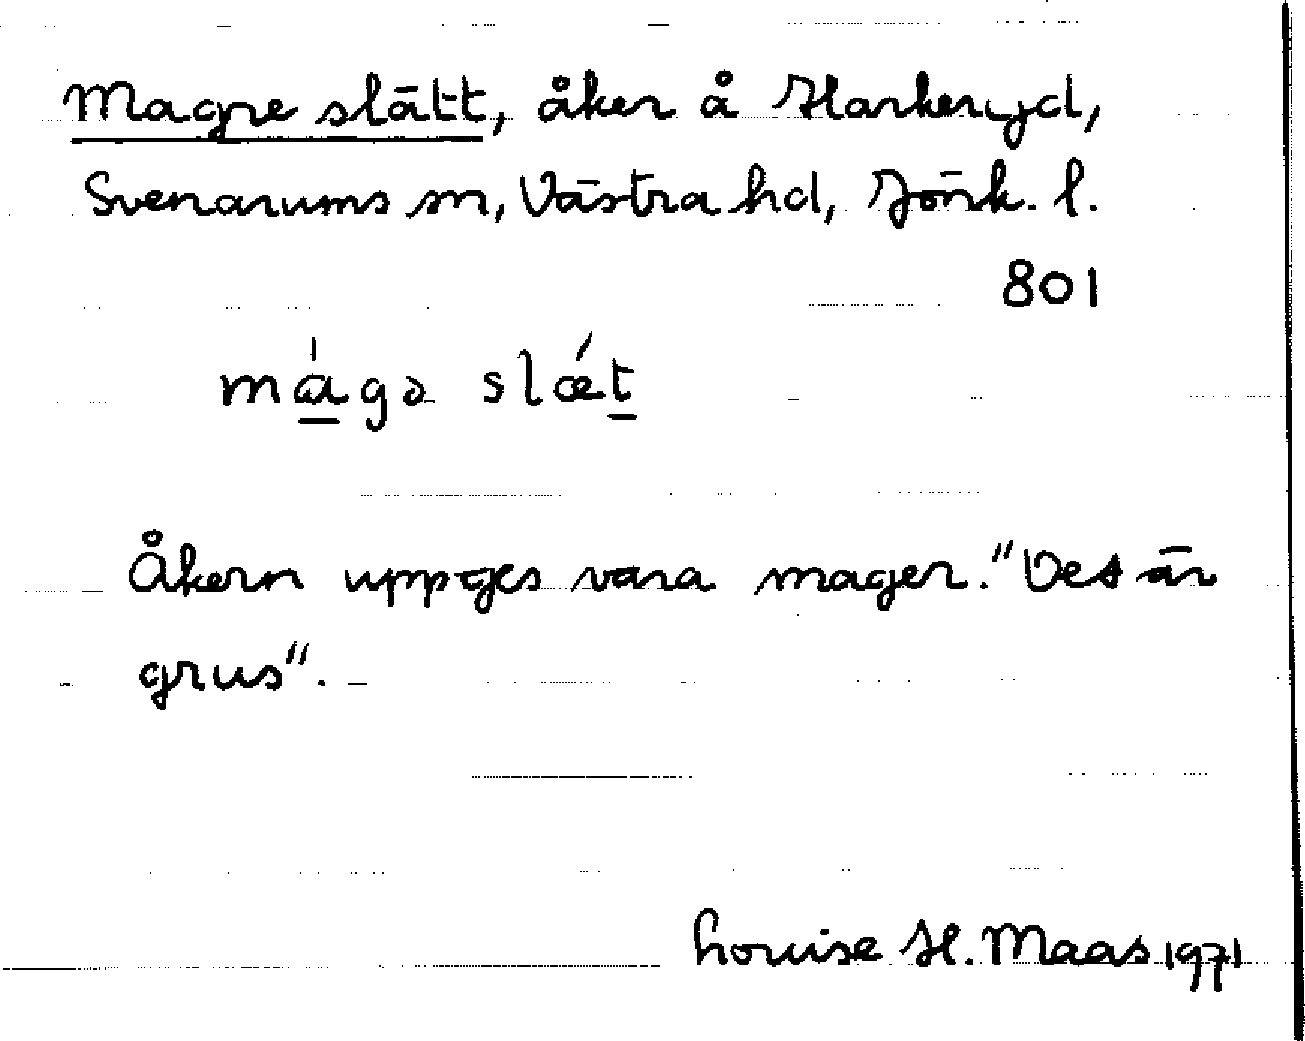 Magre slätt, åker å Harkeryd,
Svenarums sn, Västra hd, Jönk. l.
801
mága slǽt
Åkern uppges vara mager. "Det är
grus".
Louise H. Maas 1971